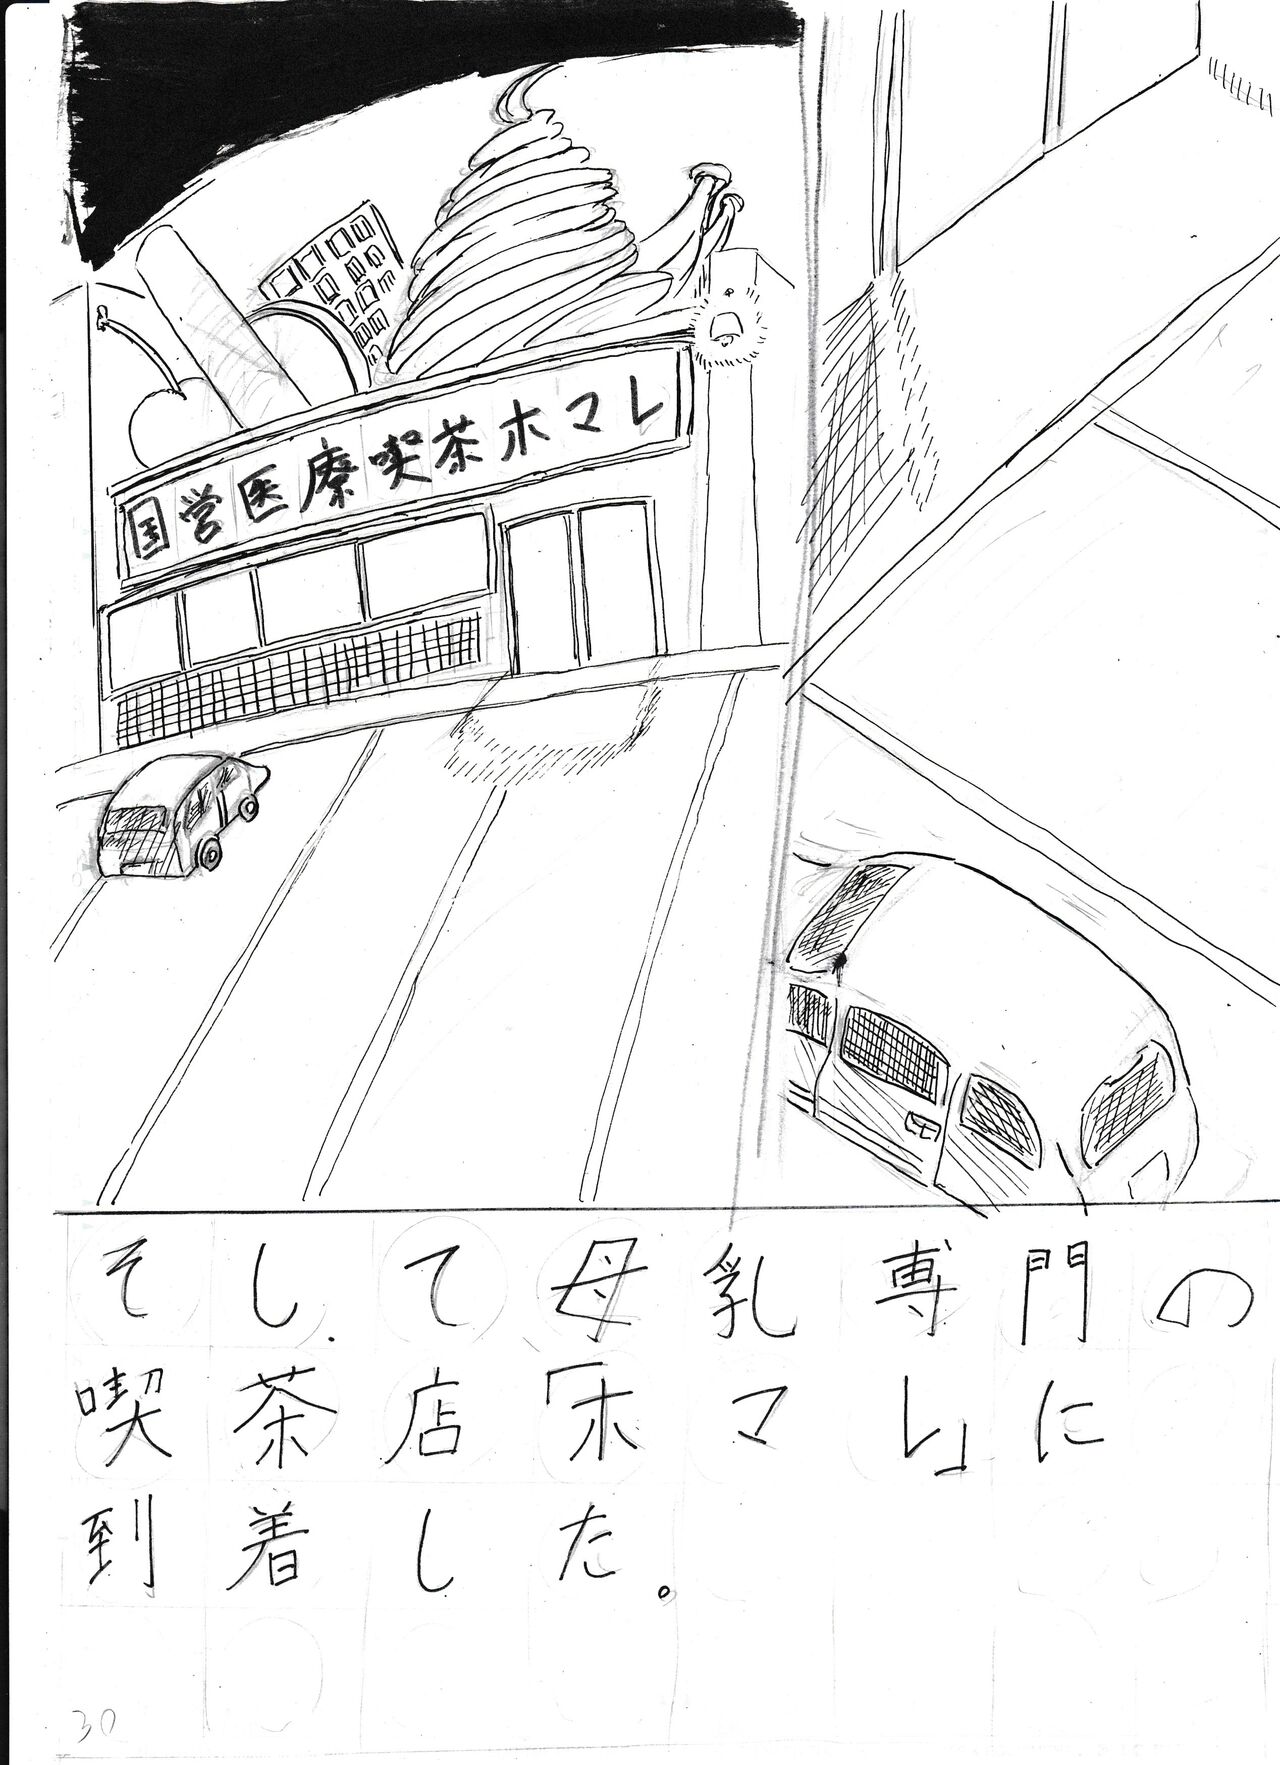 国営医療喫茶ホマレ
そして母乳専門の
喫茶店「ホマレ」に
到着した。
30